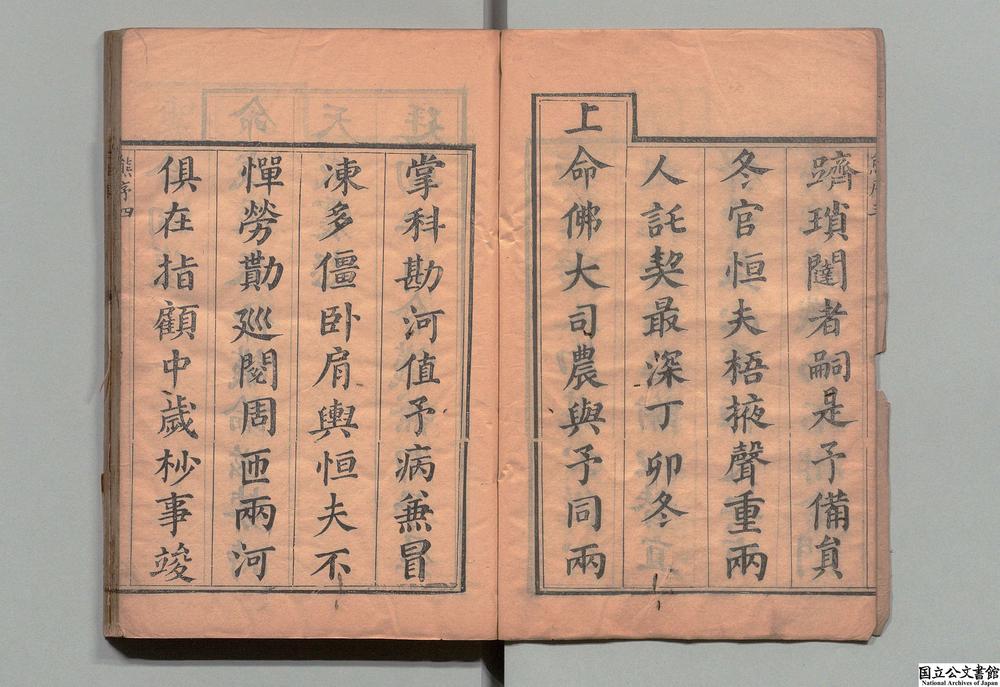 躋瑣闥者嗣是予備員
冬官恒夫梧掖聲重兩
人託契最深丁卯冬
上命佛大司農與予同兩
掌科勘河值予病兼冒
凍多僵卧肩輿恒夫不
憚勞勩廵閱周匝兩河
俱在指顧中歲杪事竣
熊序四
国立公文書館
National Archives of Japan